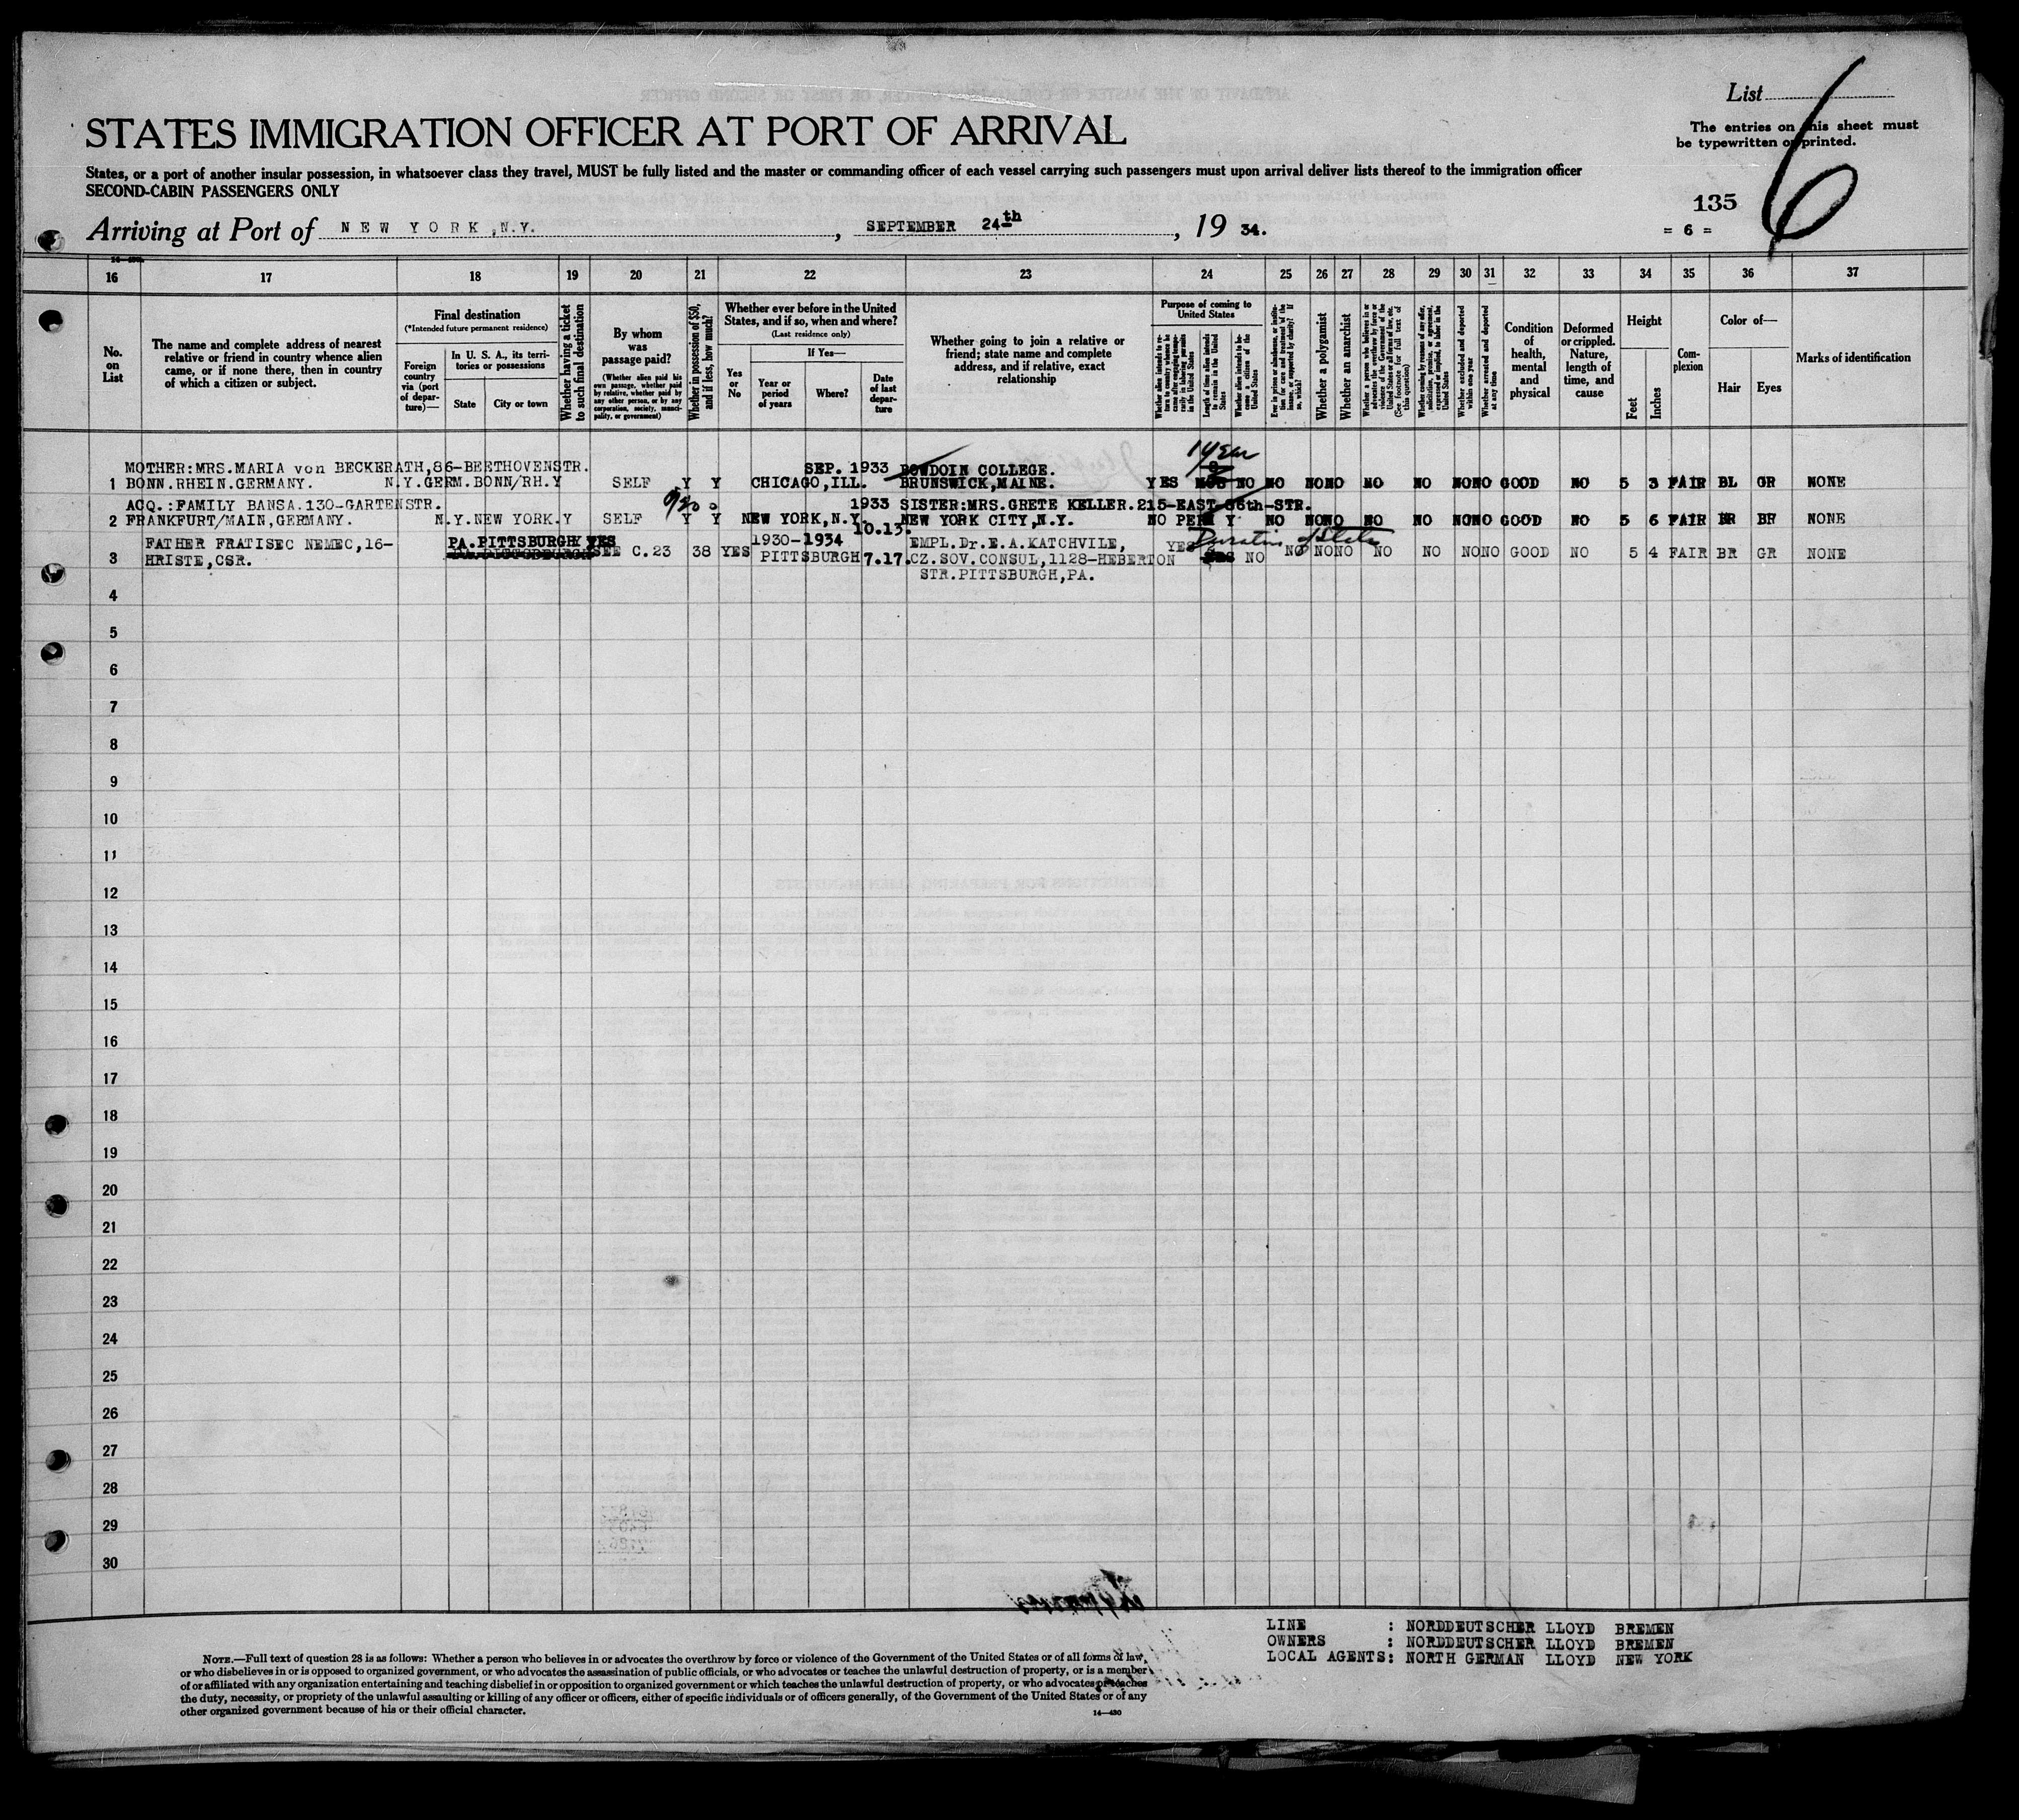 List
The entries on this sheet must
be typewritten or printed.
6
STATES IMMIGRATION OFFICER AT PORT OF ARRIVAL
States, or a port of another insular possession, in whatsoever class they travel, MUST be fully listed and the master or commanding officer of each vessel carrying such passengers must upon arrival deliver lists thereof to the immigration officer
SECOND-CABIN PASSENGERS ONLY
135
= 6 =
Arriving at Port of NEW YORK,N.Y., SEPTEMBER 24th, 19 34.
16 17 18 19 20 21 22 23 24 25 26 27 28 29 30 31 32 33 34 35 36 37
No. on List
The name and complete address of nearest relative or friend in country whence alien came, or if none there, then in country of which a citizen or subject.
Final destination
(*Intended future permanent residence)
Foreign country via (port of departure)—
In U. S. A., its territories or possessions
State
City or town
Whether having a ticket to such final destination
By whom was passage paid?
(Whether alien paid his own passage, whether paid by relative, whether paid by any other person, or by any corporation, society, municipality, or government)
Whether in possession of $50, and if less, how much?
Whether ever before in the United States, and if so, when and where?
(Last residence only)
Yes or No
If Yes—
Year or period of years
Where?
Date of last departure
Whether going to join a relative or friend; state name and complete address, and if relative, exact relationship
Purpose of coming to United States
Length of time alien intends to remain in the United States
Whether alien intends to become a citizen of the United States
Whether a polygamist
Whether an anarchist
Whether excluded and deported within one year
Whether arrested and deported at any time
Condition of health, mental and physical
Deformed or crippled. Nature, length of time, and cause
Height
Feet
Inches
Complexion
Color of—
Hair
Eyes
Marks of identification
1 year
MOTHER:MRS.MARIA von BECKERATH,86-BEETHOVENSTR. SEP. 1933 BOWDOIN COLLEGE.
1 BONN.RHEIN.GERMANY. N.Y.GERM.BONN/RH.Y SELF Y Y CHICAGO,ILL. BRUNSWICK,MAINE. YES NO NO NONO NO NO NONO GOOD NO 5 3 FAIR BL GR NONE
ACQ.:FAMILY BANSA.130-GARTENSTR. 1933 SISTER:MRS.GRETE KELLER.215-EAST-86th-STR.
2 FRANKFURT/MAIN,GERMANY. N.Y.NEW YORK.Y SELF Y Y NEW YORK,N.Y. 10.13. NEW YORK CITY,N.Y. NO PERM Y NO NONO NO NO NONO GOOD NO 5 6 FAIR BR NONE
FATHER FRATISEC NEMEC,16- PA.PITTSBURGH YES 1930-1934 EMPL.Dr.E.A.KATCHVILE, YES Duration of Status
3 HRISTE,CSR. SEE C.23 38 YES PITTSBURGH 7.17. CZ.SOV.CONSUL,1128-HEBERTON NO NO NONO NO NO NONO GOOD NO 5 4 FAIR BR GR NONE
STR.PITTSBURGH,PA.
4
5
6
7
8
9
10
11
12
13
14
15
16
17
18
19
20
21
22
23
24
25
26
27
28
29
30
LINE : NORDDEUTSCHER LLOYD BREMEN
OWNERS : NORDDEUTSCHER LLOYD BREMEN
LOCAL AGENTS: NORTH GERMAN LLOYD NEW YORK
NOTE.—Full text of question 28 is as follows: Whether a person who believes in or advocates the overthrow by force or violence of the Government of the United States or of all forms of law,
or who disbelieves in or is opposed to organized government, or who advocates the assassination of public officials, or who advocates or teaches the unlawful destruction of property, or is a member
of or affiliated with any organization entertaining and teaching disbelief in or opposition to organized government or which teaches the unlawful destruction of property, or who advocates or teaches
the duty, necessity, or propriety of the unlawful assaulting or killing of any officer or officers, either of specific individuals or of officers generally, of the Government of the United States or of any
other organized government because of his or their official character.
14—430